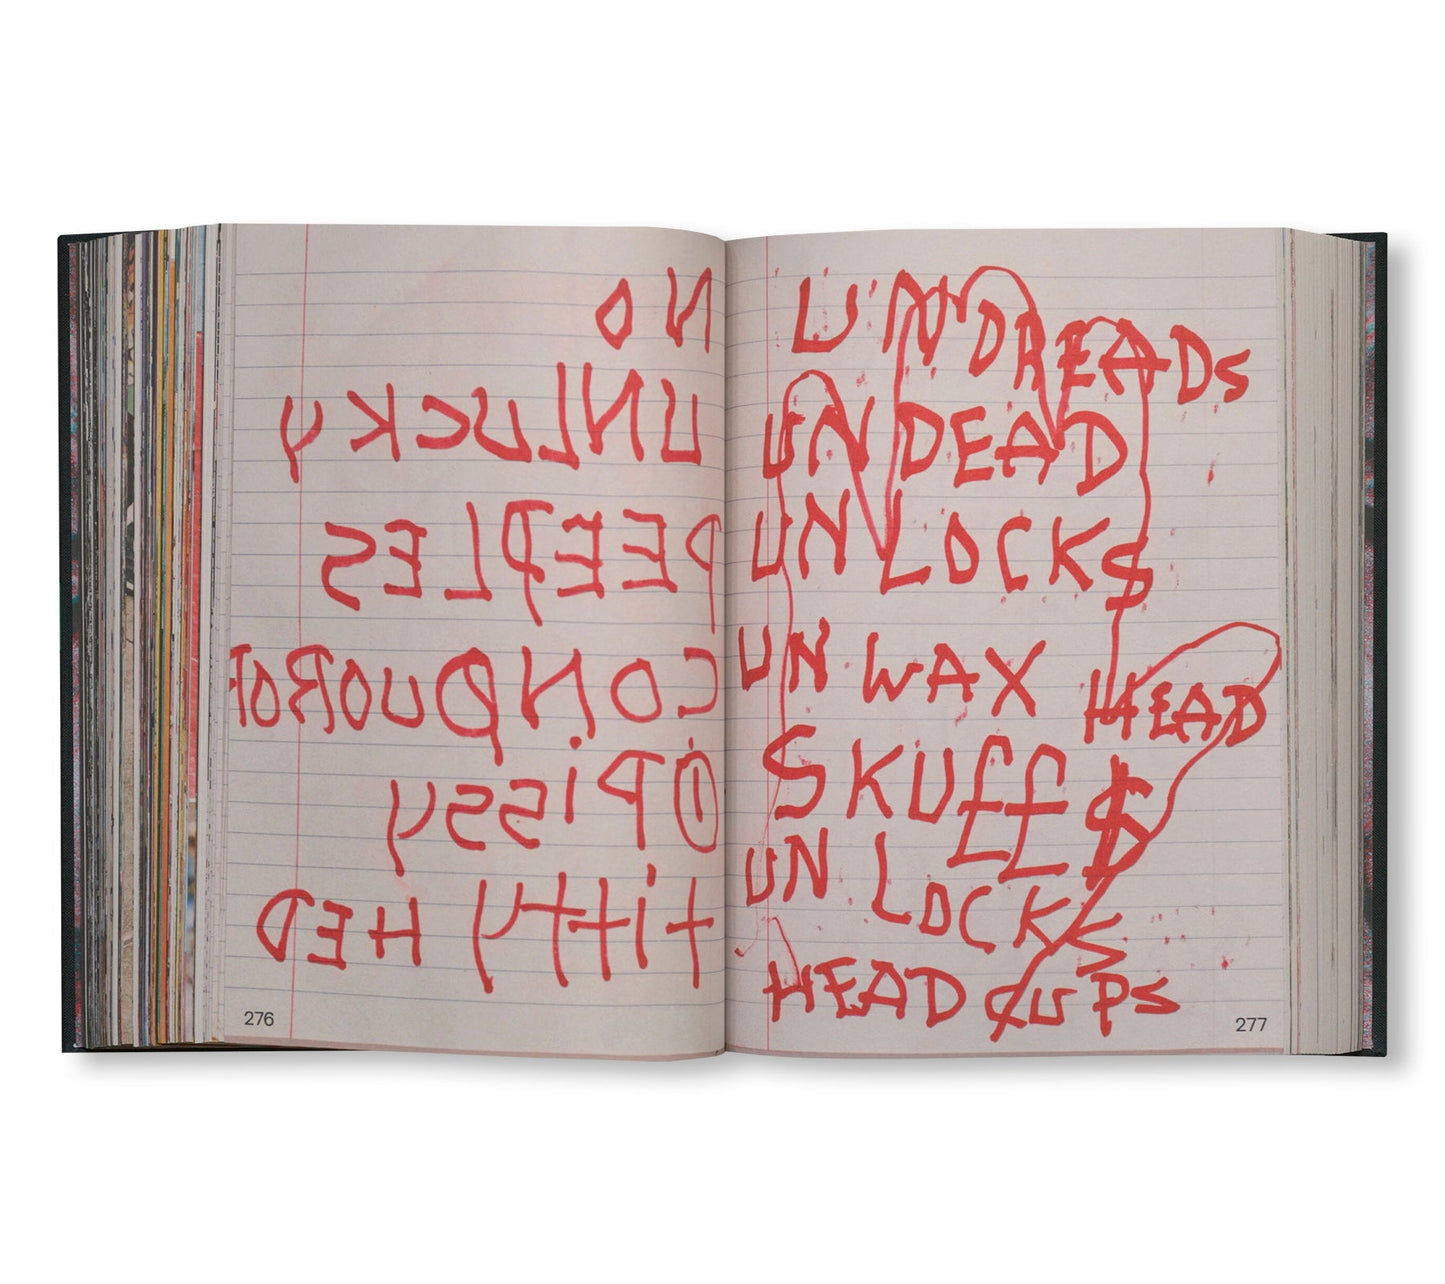 NO
UNLUCKY
PEEPLES
CONQUOROR
① PISSY
TITTY HED
276
UNDREADS
UNDEAD
UNLOCKS
UN WAX HEAD
SKUFF$
UNLOCKS
HEAD CUPS
277